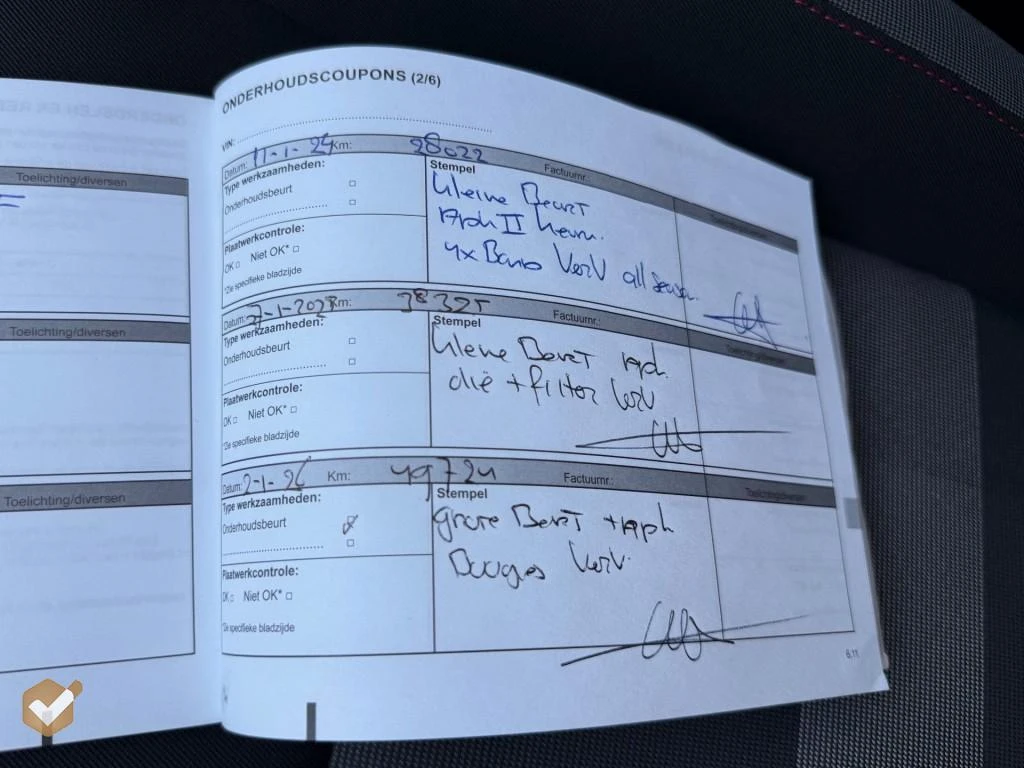 ONDERHOUDSCOUPONS (2/6)
VIN:
Toelichting/diversen
Datum: 11-1-24 Km: 28022 Factuurnr.:
Type werkzaamheden:
Onderhoudsbeurt
Plaatwerkcontrole:
OK Niet OK*
*Zie specifieke bladzijde
Stempel
kleine Beurt
APK II keur.
4x Band Verv all season
Toelichting/diversen
Toelichting/diversen
Datum: 7-1-202 Km: 38325 Factuurnr.:
Type werkzaamheden:
Onderhoudsbeurt
Plaatwerkcontrole:
OK Niet OK*
*Zie specifieke bladzijde
Stempel
kleine Beurt apk.
olie + filter Verv
Toelichting/diversen
Toelichting/diversen
Datum: 2-1-26 Km: 49724 Factuurnr.:
Type werkzaamheden:
Onderhoudsbeurt
Plaatwerkcontrole:
OK Niet OK*
*Zie specifieke bladzijde
Stempel
grote Beurt + apk
Bougies Verv.
Toelichting/diversen
6.11